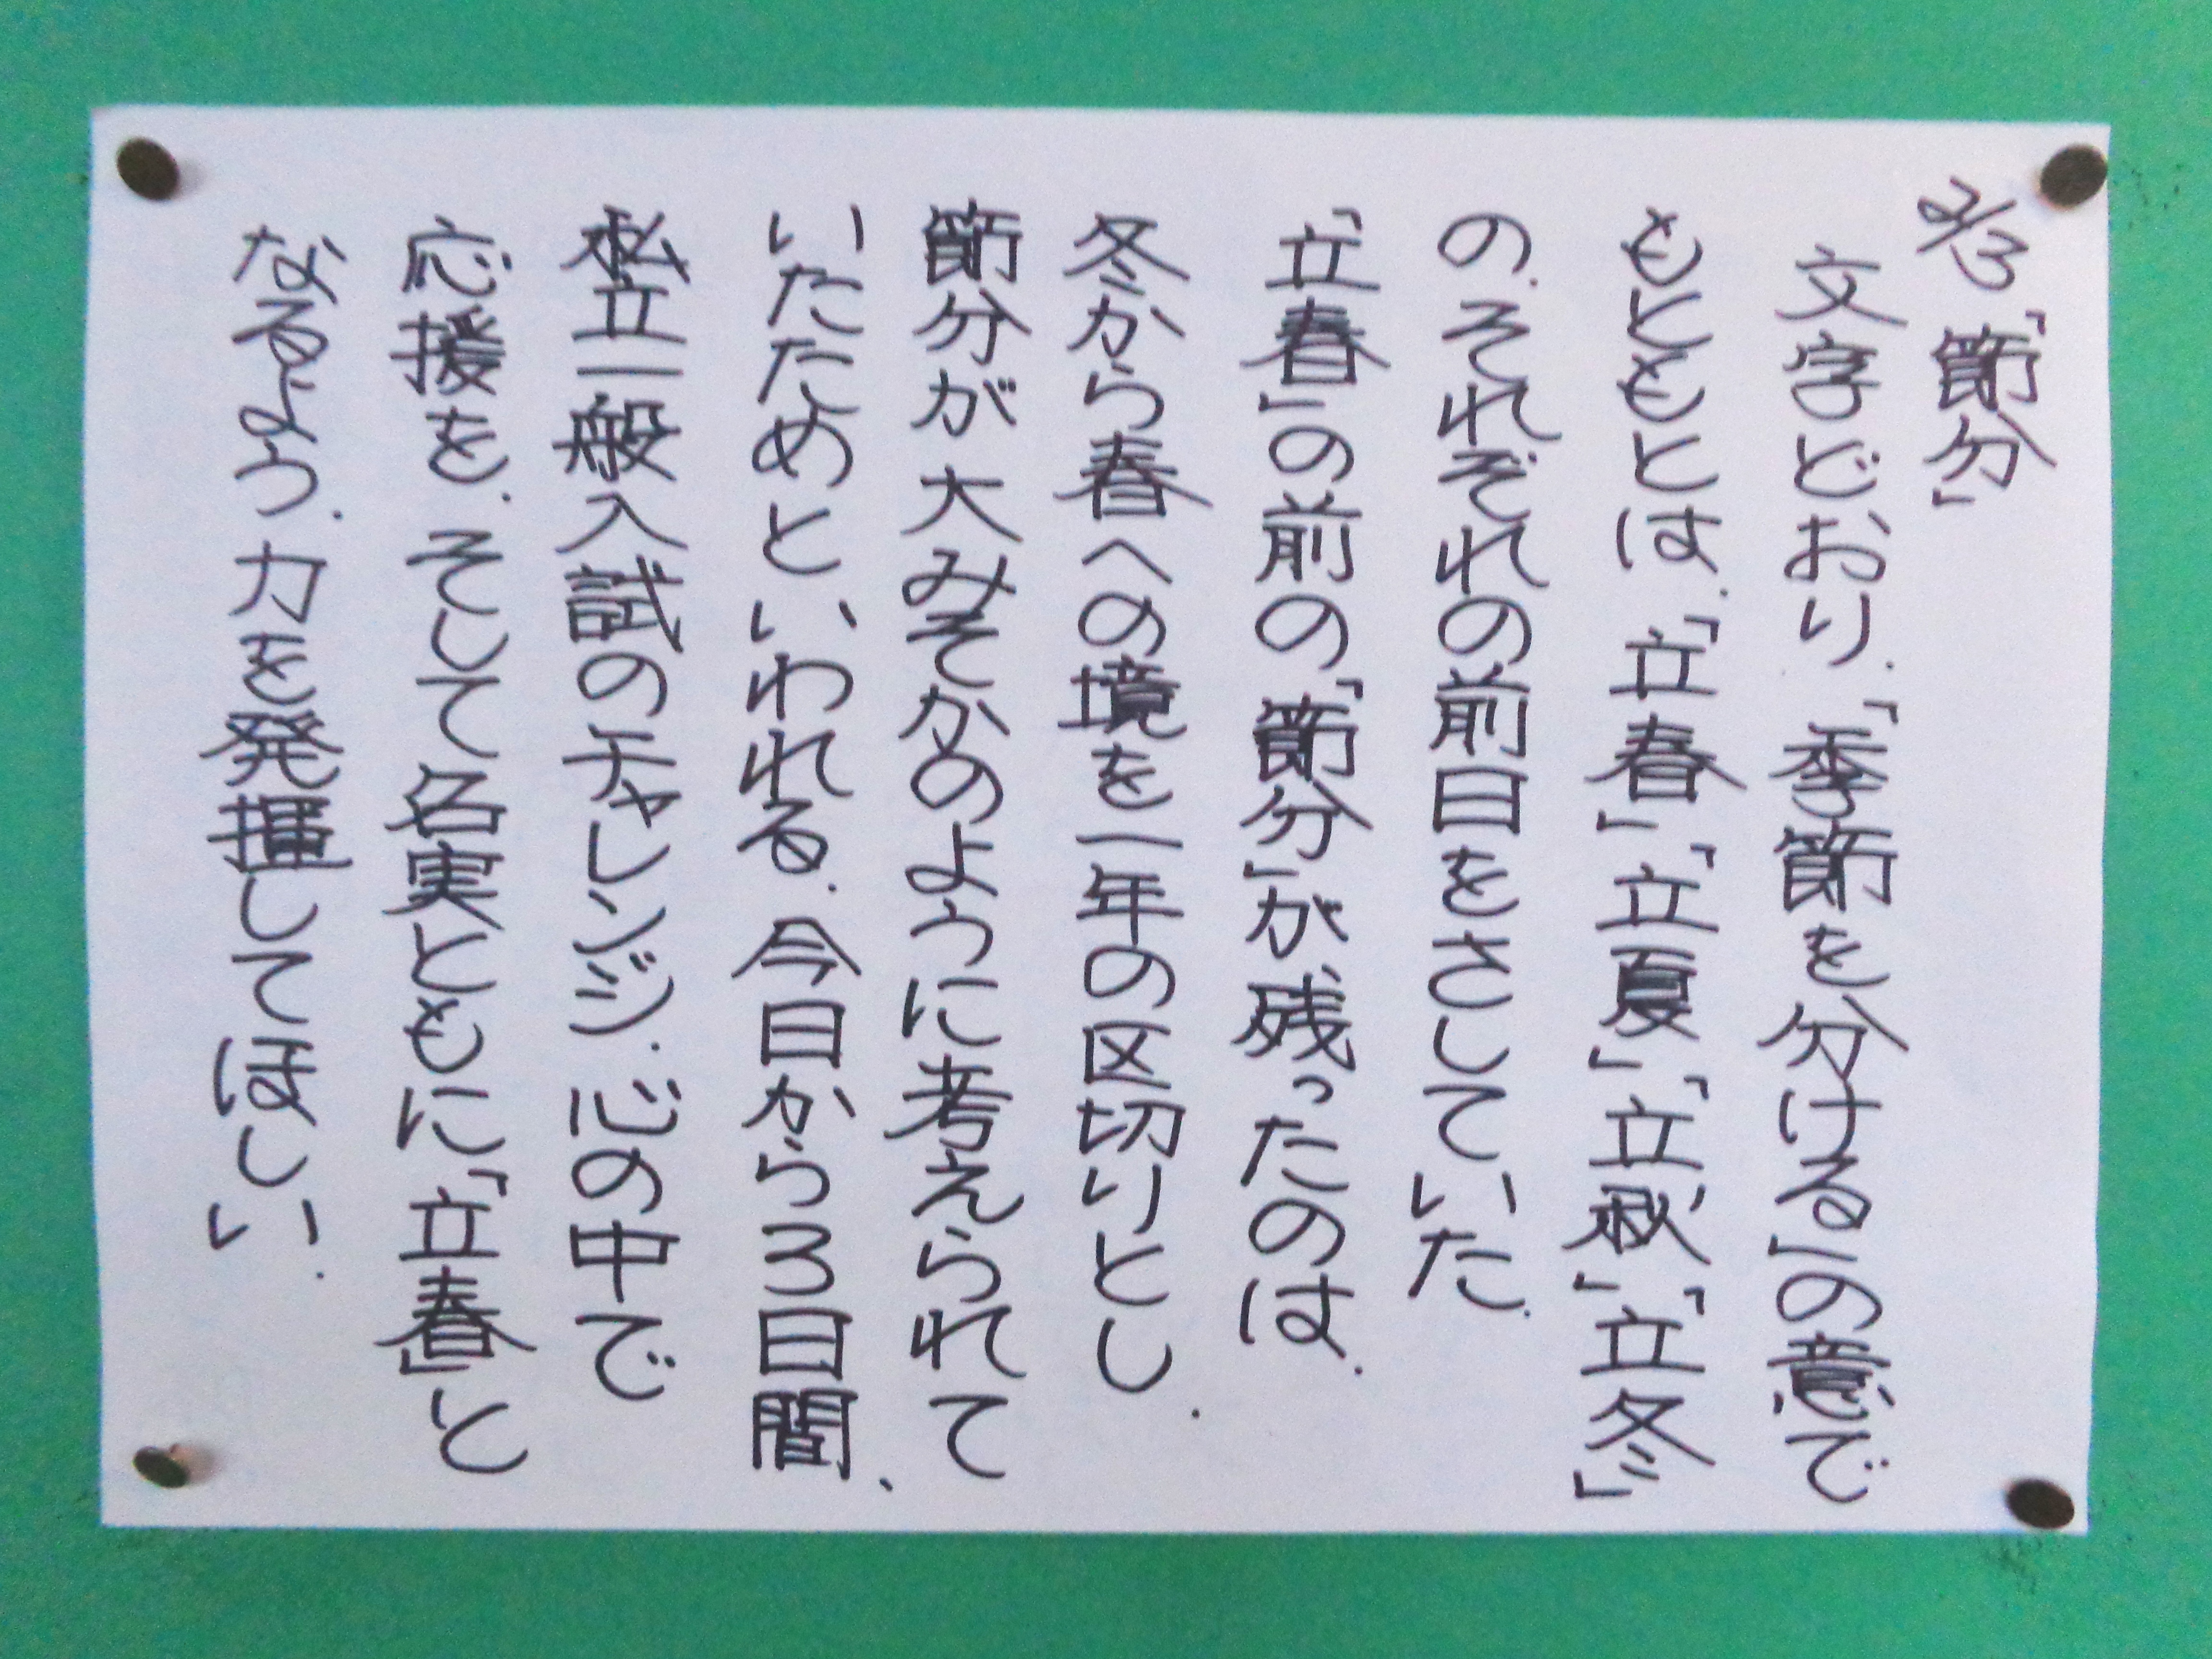 2/3「節分」
文字どおり、「季節を分ける」の意で
もともとは、「立春」「立夏」「立秋」「立冬」
の、それぞれの前日をさしていた。
「立春」の前の「節分」が残ったのは、
冬から春への境を一年の区切りとし、
節分が大みそかのように考えられて
いたためといわれる。今日から3日間、
私立一般入試のチャレンジ。心の中で
応援を、そして名実ともに「立春」と
なるよう、力を発揮してほしい。